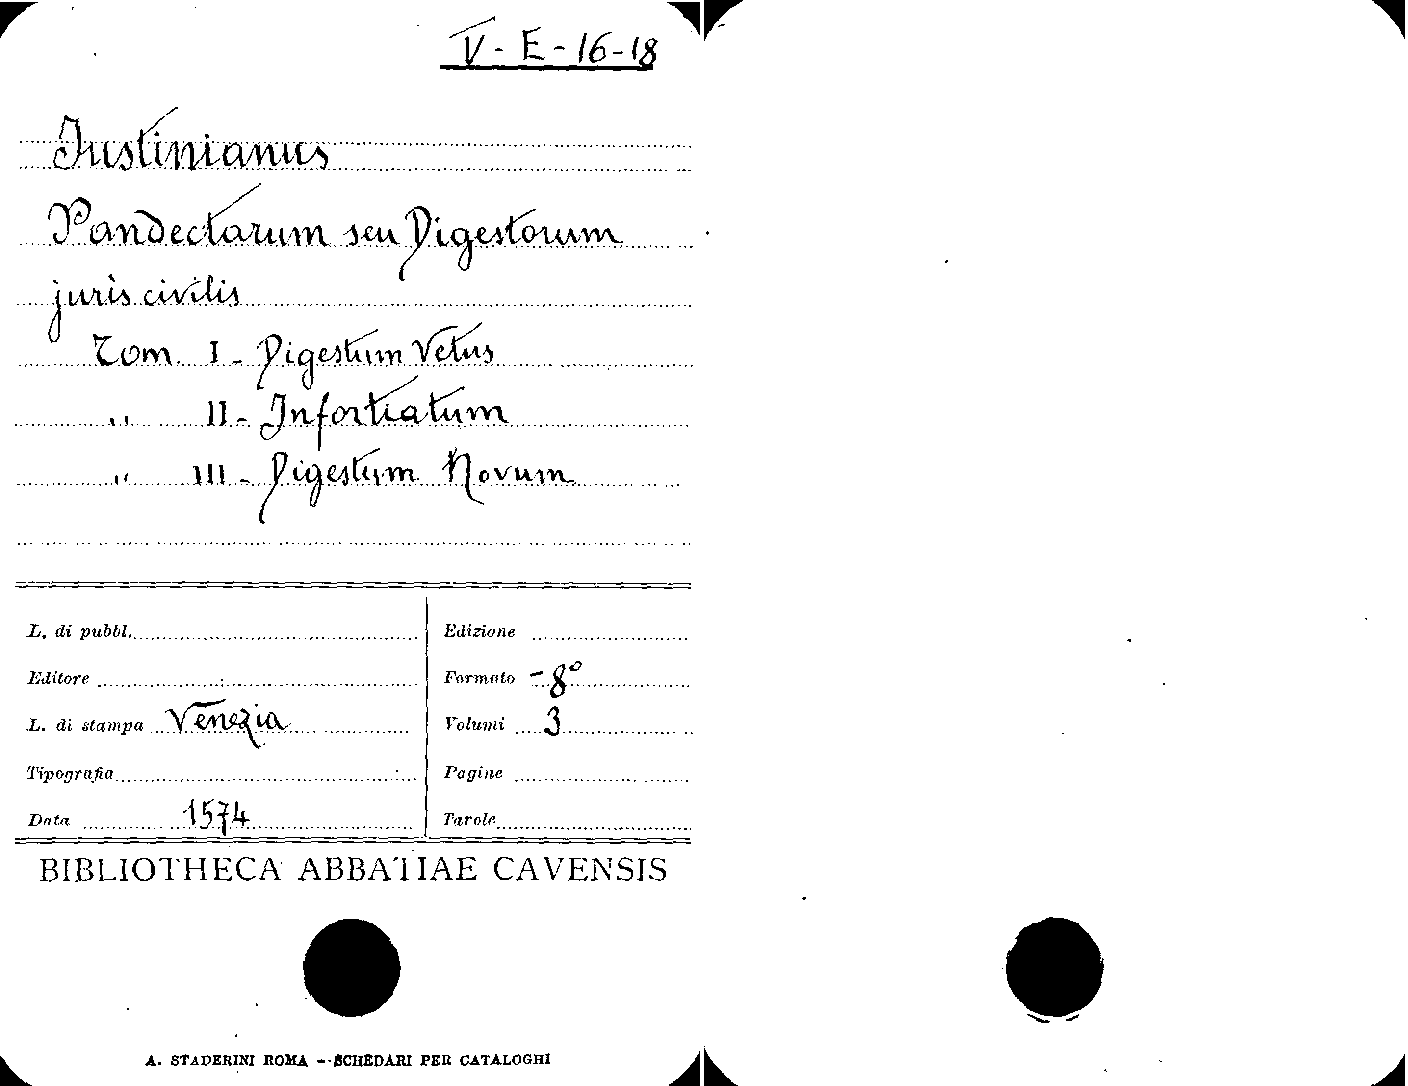 V - E - 16-18
Justinianus
Pandectarum seu Digestorum
juris civilis
Tom. I - Digestum Vetus
" II - Infortiatum
" III - Digestum Novum
L. di pubbl.
Edizione
Editore
Formato - 8°
L. di stampa Venezia
Volumi 3
Tipografia
Pagine
Data 1574
Tavole
BIBLIOTHECA ABBATIAE CAVENSIS
A. STADERINI ROMA - SCHEDARI PER CATALOGHI